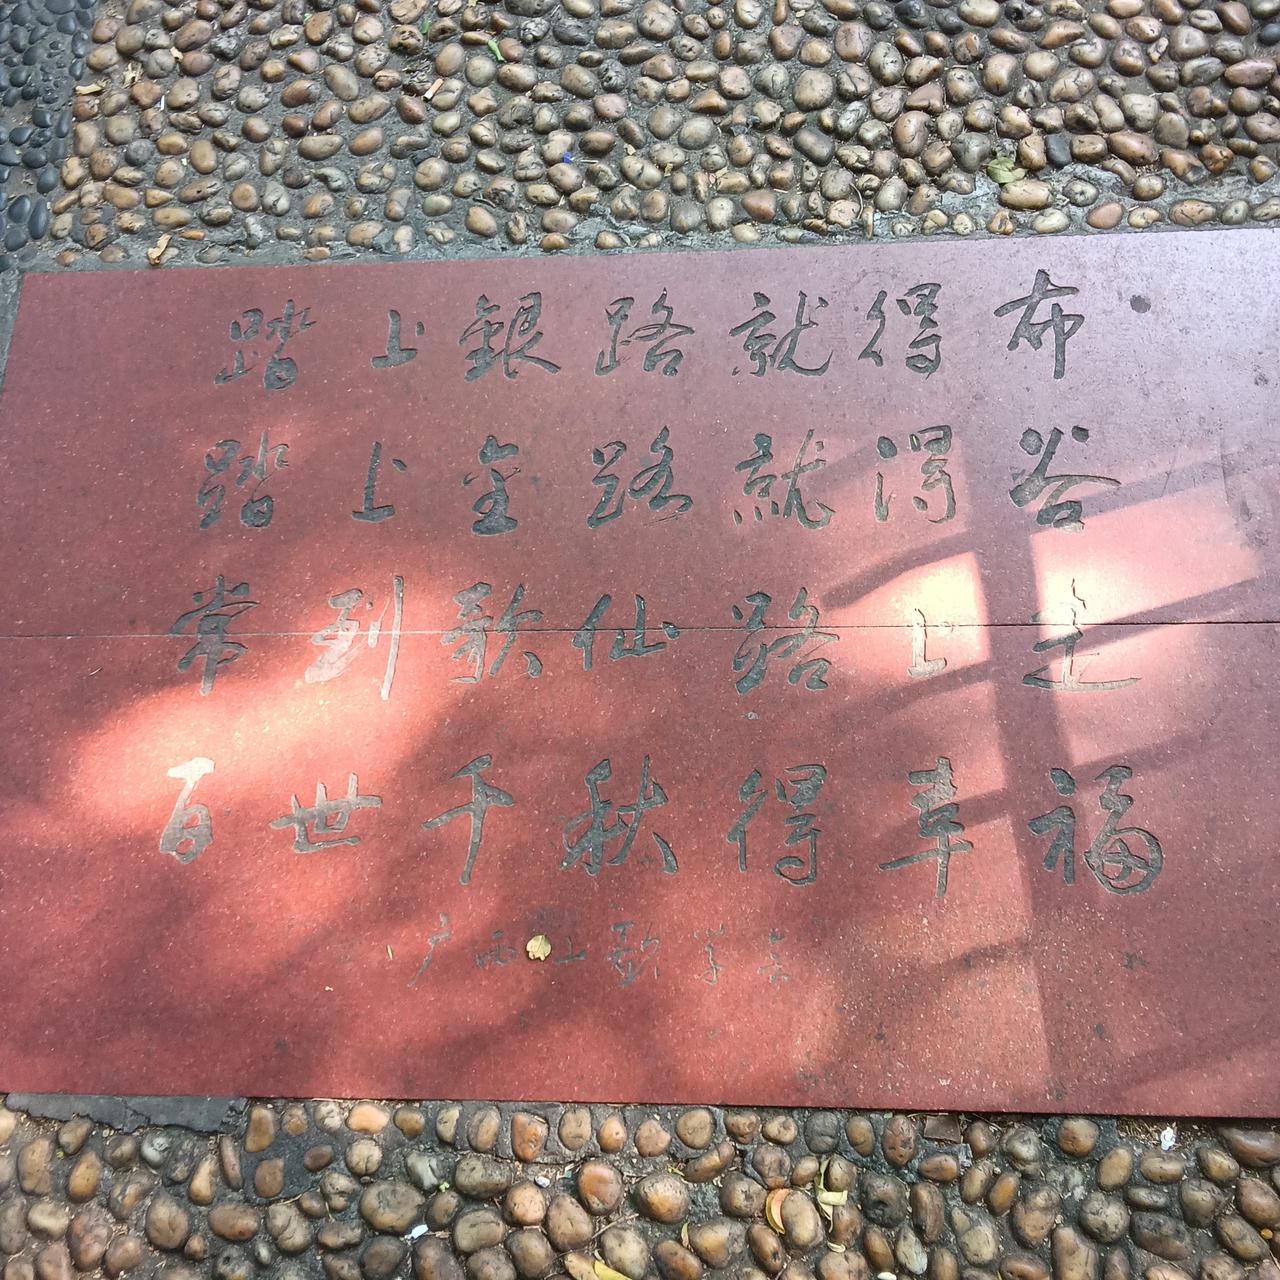 踏上銀路就得布
踏上金路就得谷
常到歌仙路上走
百世千秋得幸福
广西山歌学会